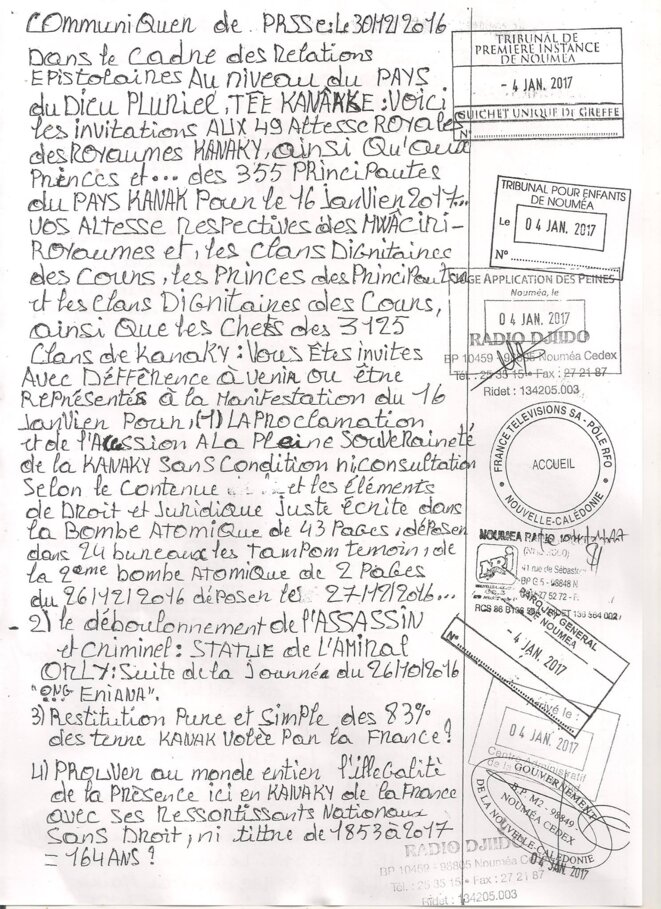 COMMUNIQUER de PRSSe: Le 30/12/2016
Dans le cadre des Relations
EPistolaires Au niveau du PAYS
du Dieu PLURIEL, TÉE KANÂAKE : Voici
les invitations AUX 49 Altesse ROYale
des ROYAUMES KANAKY, ainsi Qu'aux
Princes et... des 355 PRinciPautes
du PAYS KANAK Pour le 16 Janvier 2017...
VOS ALtesse Respectives des MWÂCIRI-
ROYaumes et, les clans DiGnitaines
des Cours, les Princes des PrinciPautés
et les Clans DIGnitaines des Cours,
ainsi Que les Chefs des 3125
Clans de KanaKY : Vous Êtes invites
Avec DéFFÉrence à venir ou être
REPrésentés à la Manifestation du 16
Janvier Pour, (1) LA PRoclamation
et de l'Acession A La Pleine Souveraineté
de la KANAKY Sans Condition ni Consultation
Selon le Contenue et les Éléments
de Droit et Juridique Juste Écrite dans
la Bombe Atomique de 43 Pages, déPoser
dans 24 bureaux les TamPom Temoin, de
la 2eme bombe Atomique de 2 Pages
du 26/12/2016 déPoser les 27/12/2016...
- 2) le déboulonnement de l'ASSASSIN
et Criminel : STATUE de L'AMIRAL
ORLY : Suite de la Journée du 26/10/2016
"ONG ENIANA".
3) Restitution Pure et Simple des 83%
des terre KANAK Volée Par la France !
4) PROUVER au monde entier l'illegalité
de la PRésence ici en KANAKY de la France
avec ses Ressortissants Nationaux
Sans Droit, ni tittre de 1853 à 2017
= 164 ANS !
TRIBUNAL DE
PREMIERE INSTANCE
DE NOUMÉA
- 4 JAN. 2017
GUICHET UNIQUE DE GREFFE
N°
TRIBUNAL POUR ENFANTS
DE NOUMÉA
Le 04 JAN. 2017
N°
JUGE APPLICATION DES PEINES
Nouméa, le
04 JAN. 2017
RADIO DJIIDO
BP 10459 - 98805 Nouméa Cedex
Tél. : 25 35 15 • Fax : 27 21 87
Ridet : 134205.003
FRANCE TELEVISIONS SA - PÔLE RFO
ACCUEIL
NOUVELLE-CALÉDONIE
NOUMEA
41 rue de Sébastopol
BP G 5 - 98848 N
27 52 72 - F
RCS 86 B
PARQUET GENERAL
DE NOUMÉA
- 4 JAN. 2017
N°
04 JAN. 2017
Centre Administratif
de la
GOUVERNEMENT
B.P. M2 - 98849 -
NOUMÉA CEDEX
DE LA NOUVELLE-CALÉDONIE
04 JAN. 2017
RADIO DJIIDO
BP 10459 - 98805 Nouméa Cedex
Tél. : 25 35 15 • Fax : 27 21 87
Ridet : 134205.003